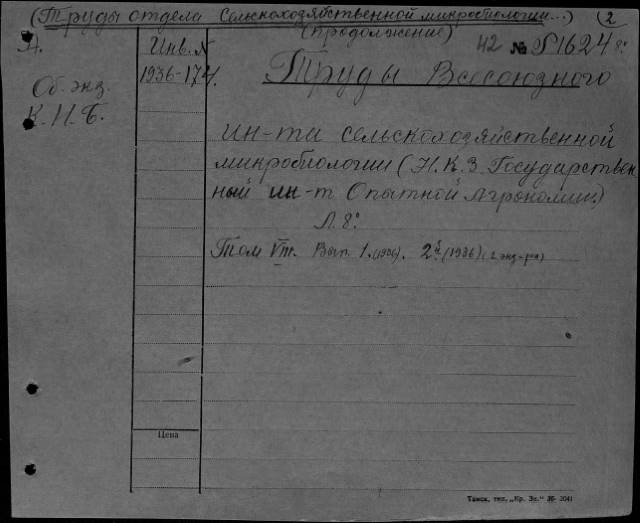 (Труды отдела Сельскохозяйственной микробиологии...) (2
(продолжение)
Л. Инв. № 42 № 1624 8°
Об. экз. 1936-174. Труды Всесоюзного
К.Н.Б.
ин-та сельскохозяйственной
микробиологии (Н.К.З. Государствен
ный ин-т Опытной Агрономии)
Л. 8°
Том VIII. Вып. 1. (1936). 2 (1936) (2 экз-ра)
Цена
Томск, тип. „Кр. Зн." 36- 2041